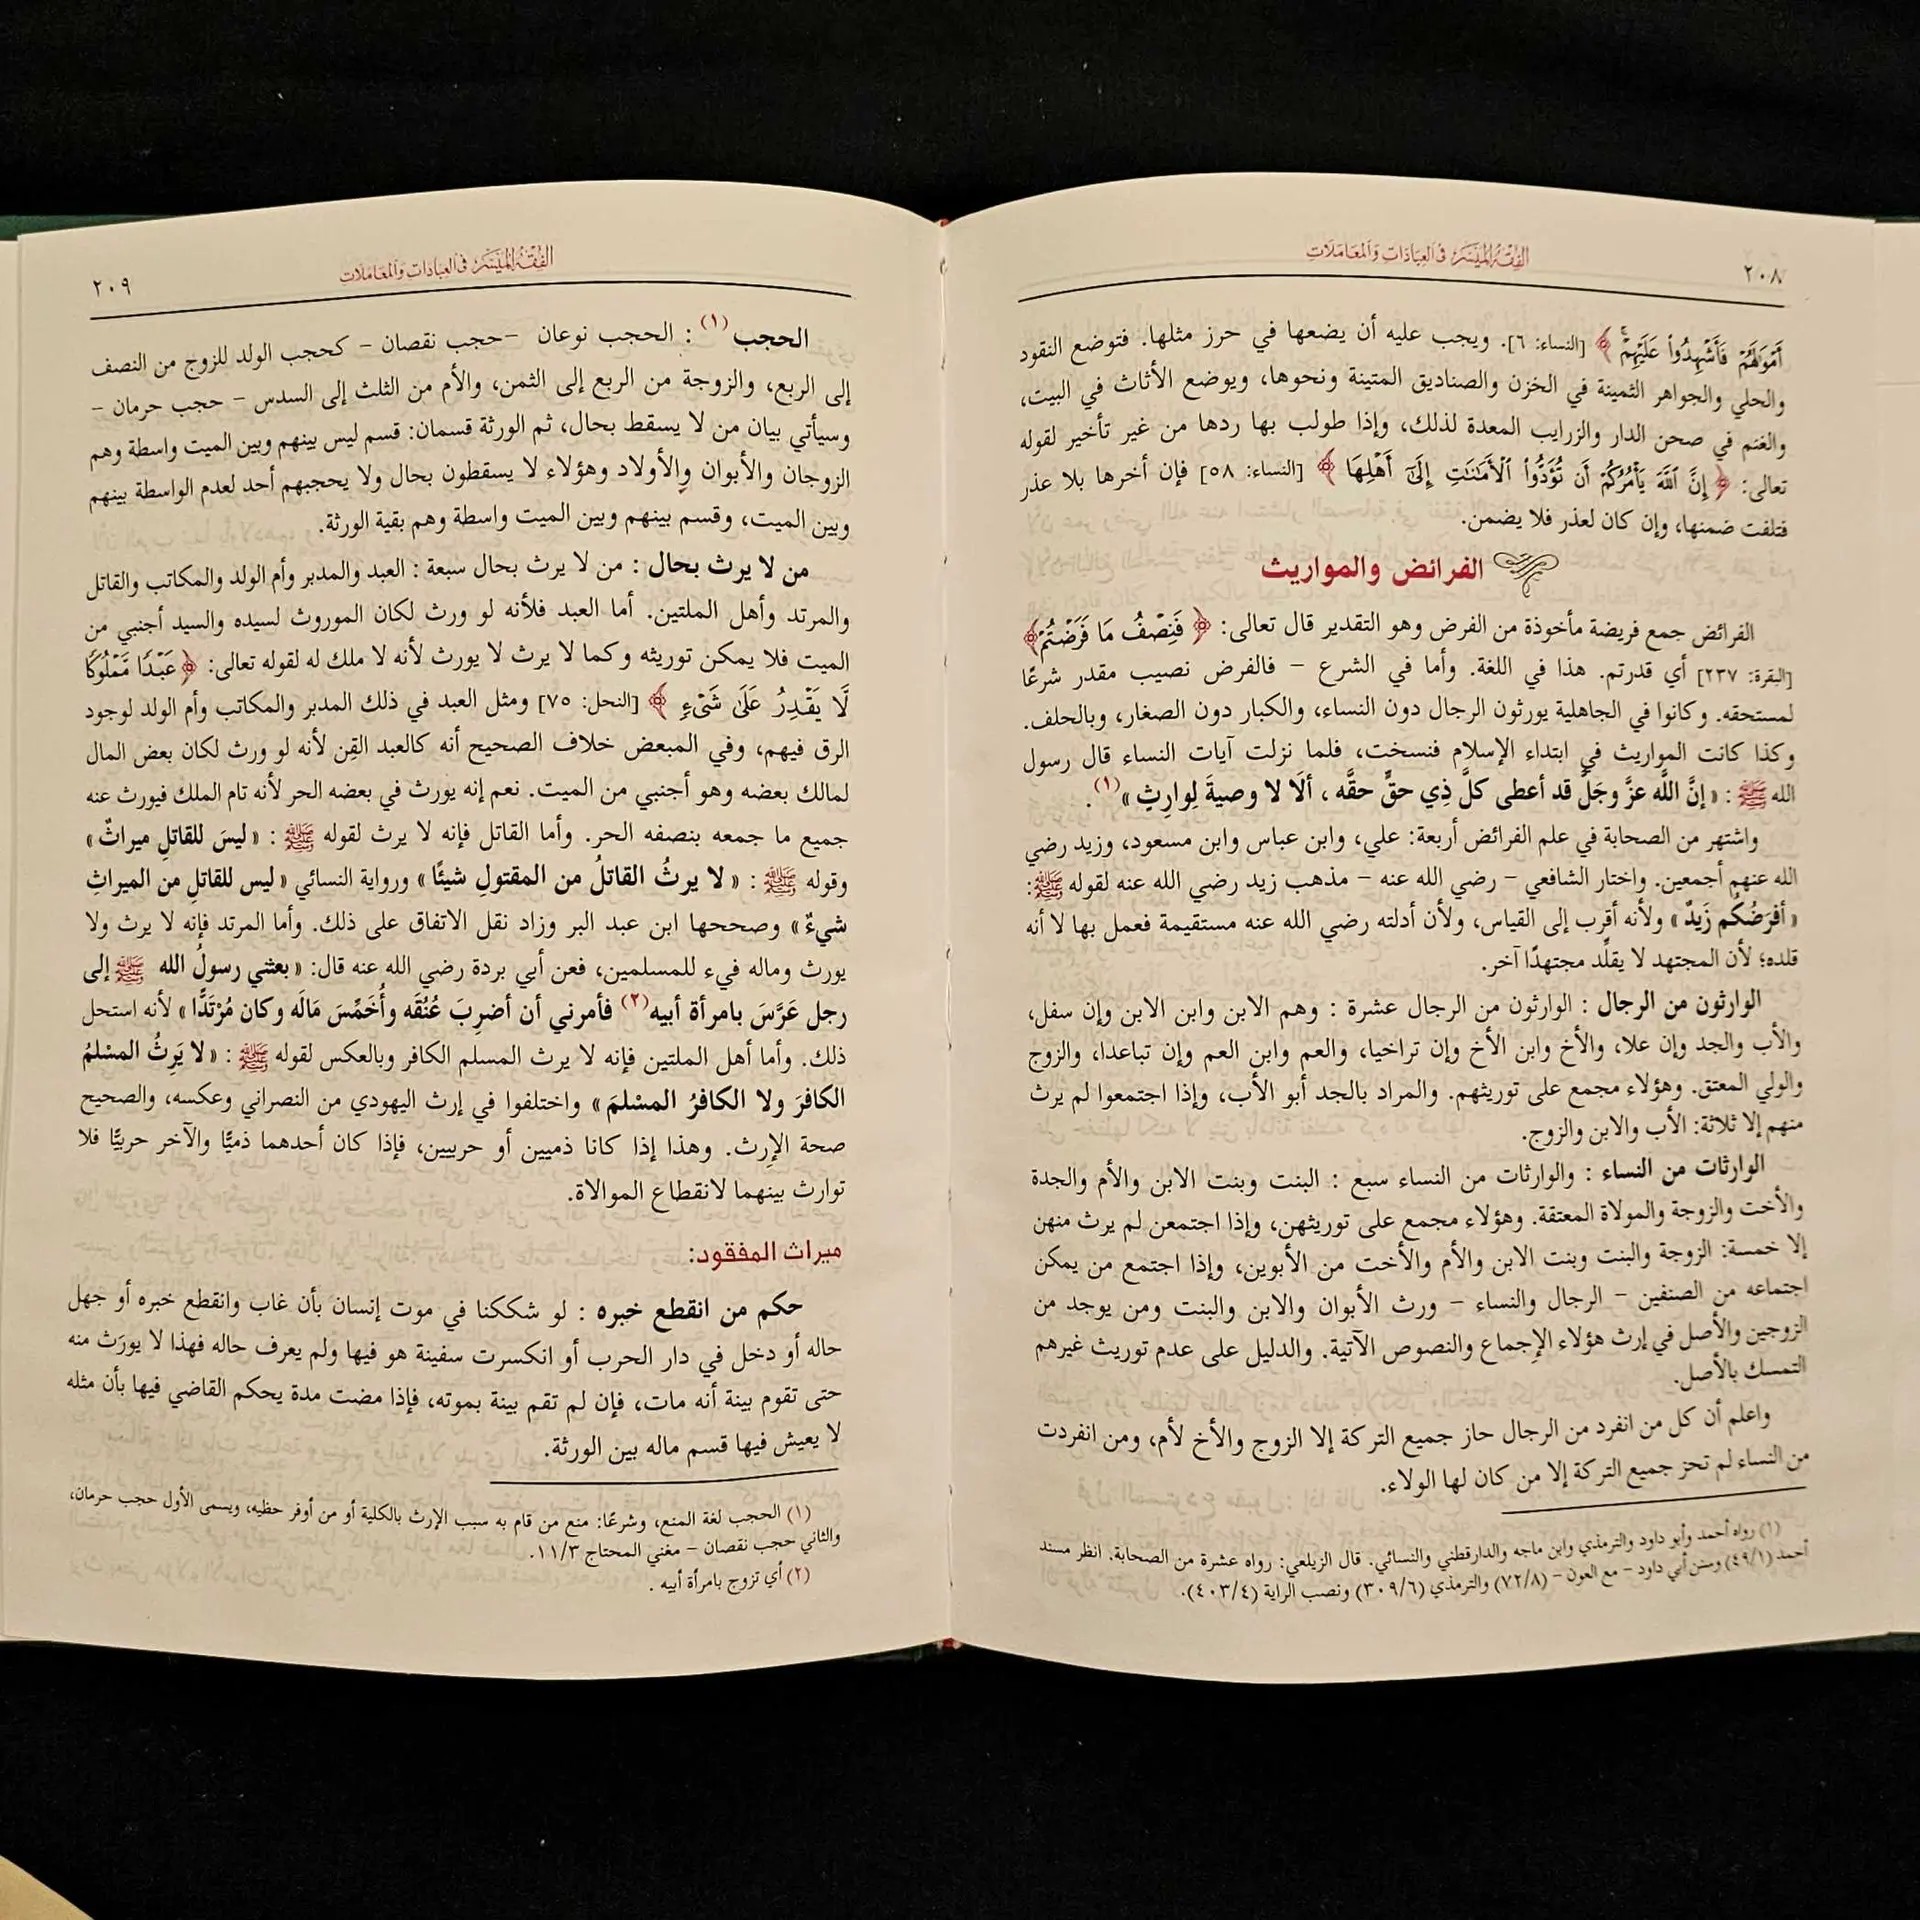 الفقه الميسر في العبادات والمعاملات
٢٠٨
أَمْوَٰلَهُمْ فَأَشْهِدُوا۟ عَلَيْهِمْ ۚ ﴾ [النساء: ٦]. ويجب عليه أن يضعها في حرز مثلها. فتوضع النقود
والحلي والجواهر الثمينة في الخزن والصناديق المتينة ونحوها، ويوضع الأثاث في البيت،
والغنم في صحن الدار والزرايب المعدة لذلك، وإذا طولب بها ردها من غير تأخير لقوله
تعالى: ﴿ إِنَّ ٱللَّهَ يَأْمُرُكُمْ أَن تُؤَدُّوا۟ ٱلْأَمَٰنَٰتِ إِلَىٰٓ أَهْلِهَا ﴾ [النساء: ٥٨] فإن أخرها بلا عذر
فتلفت ضمنها، وإن كان لعذر فلا يضمن.
الفرائض والمواريث
الفرائض جمع فريضة مأخوذة من الفرض وهو التقدير قال تعالى: ﴿ فَنِصْفُ مَا فَرَضْتُمْ﴾
[البقرة: ٢٣٧] أي قدرتم. هذا في اللغة. وأما في الشرع – فالفرض نصيب مقدر شرعًا
لمستحقه. وكانوا في الجاهلية يورثون الرجال دون النساء، والكبار دون الصغار، وبالحلف.
وكذا كانت المواريث في ابتداء الإسلام فنسخت، فلما نزلت آيات النساء قال رسول
الله ﷺ : « إنَّ اللَّه عزَّ وجَلَّ قد أعطى كلَّ ذِي حقٍّ حقَّه ، ألَا لا وصيةَ لِوارِثٍ »(١).
واشتهر من الصحابة في علم الفرائض أربعة: علي، وابن عباس وابن مسعود، وزيد رضي
الله عنهم أجمعين. واختار الشافعي – رضي الله عنه – مذهب زيد رضي الله عنه لقوله ﷺ:
« أفرَضُكُم زَيدٌ » ولأنه أقرب إلى القياس، ولأن أدلته رضي الله عنه مستقيمة فعمل بها لا أنه
قلده؛ لأن المجتهد لا يقلِّد مجتهدًا آخر.
الوارثون من الرجال : الوارثون من الرجال عشرة : وهم الابن وابن الابن وإن سفل،
والأب والجد وإن علا، والأخ وابن الأخ وإن تراخيا، والعم وابن العم وإن تباعدا، والزوج
والولي المعتق. وهؤلاء مجمع على توريثهم. والمراد بالجد أبو الأب، وإذا اجتمعوا لم يرث
منهم إلا ثلاثة: الأب والابن والزوج.
الوارثات من النساء : والوارثات من النساء سبع : البنت وبنت الابن والأم والجدة
والأخت والزوجة والمولاة المعتقة. وهؤلاء مجمع على توريثهن، وإذا اجتمعن لم يرث منهن
إلا خمسة: الزوجة والبنت وبنت الابن والأم والأخت من الأبوين، وإذا اجتمع من يمكن
اجتماعه من الصنفين – الرجال والنساء – ورث الأبوان والابن والبنت ومن يوجد من
الزوجين والأصل في إرث هؤلاء الإجماع والنصوص الآتية. والدليل على عدم توريث غيرهم
التمسك بالأصل.
واعلم أن كل من انفرد من الرجال حاز جميع التركة إلا الزوج والأخ لأم، ومن انفردت
من النساء لم تحز جميع التركة إلا من كان لها الولاء.
(١) رواه أحمد وأبو داود والترمذي وابن ماجه والدارقطني والنسائي. قال الزيلعي: رواه عشرة من الصحابة. انظر مسند
أحمد (٤٩/١) وسنن أبي داود – مع العون – (٧٢/٨) والترمذي (٣٠٩/٦) ونصب الراية (٤٠٣/٤).
الفقه الميسر في العبادات والمعاملات
٢٠٩
الحجب (١) : الحجب نوعان –حجب نقصان – كحجب الولد للزوج من النصف
إلى الربع، والزوجة من الربع إلى الثمن، والأم من الثلث إلى السدس – حجب حرمان –
وسيأتي بيان من لا يسقط بحال، ثم الورثة قسمان: قسم ليس بينهم وبين الميت واسطة وهم
الزوجان والأبوان والأولاد وهؤلاء لا يسقطون بحال ولا يحجبهم أحد لعدم الواسطة بينهم
وبين الميت، وقسم بينهم وبين الميت واسطة وهم بقية الورثة.
من لا يرث بحال : من لا يرث بحال سبعة : العبد والمدبر وأم الولد والمكاتب والقاتل
والمرتد وأهل الملتين. أما العبد فلأنه لو ورث لكان الموروث لسيده والسيد أجنبي من
الميت فلا يمكن توريثه وكما لا يرث لا يورث لأنه لا ملك له لقوله تعالى: ﴿ عَبْدًا مَّمْلُوكًا
لَّا يَقْدِرُ عَلَىٰ شَىْءٍ ﴾ [النحل: ٧٥] ومثل العبد في ذلك المدبر والمكاتب وأم الولد لوجود
الرق فيهم، وفي المبعض خلاف الصحيح أنه كالعبد القِن لأنه لو ورث لكان بعض المال
لمالك بعضه وهو أجنبي من الميت. نعم إنه يورث في بعضه الحر لأنه تام الملك فيورث عنه
جميع ما جمعه بنصفه الحر. وأما القاتل فإنه لا يرث لقوله ﷺ : « ليسَ للقاتلِ ميراثٌ »
وقوله ﷺ : « لا يرثُ القاتلُ من المقتولِ شيئًا » ورواية النسائي « ليس للقاتلِ من الميراثِ
شيءٌ » وصححها ابن عبد البر وزاد نقل الاتفاق على ذلك. وأما المرتد فإنه لا يرث ولا
يورث وماله فيء للمسلمين، فعن أبي بردة رضي الله عنه قال: « بعثني رسولُ الله ﷺ إلى
رجل عَرَّسَ بامرأة أبيه(٢) فأمرني أن أضرِبَ عُنُقَه وأُخَمِّسَ مَالَه وكان مُرْتَدًّا » لأنه استحل
ذلك. وأما أهل الملتين فإنه لا يرث المسلم الكافر وبالعكس لقوله ﷺ : « لا يَرِثُ المسْلمُ
الكافرَ ولا الكافرُ المسْلمَ » واختلفوا في إرث اليهودي من النصراني وعكسه، والصحيح
صحة الإرث. وهذا إذا كانا ذميين أو حربيين، فإذا كان أحدهما ذميًّا والآخر حربيًّا فلا
توارث بينهما لانقطاع الموالاة.
ميراث المفقود:
حكم من انقطع خبره : لو شككنا في موت إنسان بأن غاب وانقطع خبره أو جهل
حاله أو دخل في دار الحرب أو انكسرت سفينة هو فيها ولم يعرف حاله فهذا لا يورَث منه
حتى تقوم بينة أنه مات، فإن لم تقم بينة بموته، فإذا مضت مدة يحكم القاضي فيها بأن مثله
لا يعيش فيها قسم ماله بين الورثة.
(١) الحجب لغة المنع، وشرعًا: منع من قام به سبب الإرث بالكلية أو من أوفر حظيه، ويسمى الأول حجب حرمان،
والثاني حجب نقصان – مغني المحتاج ١١/٣.
(٢) أي تزوج بامرأة أبيه .